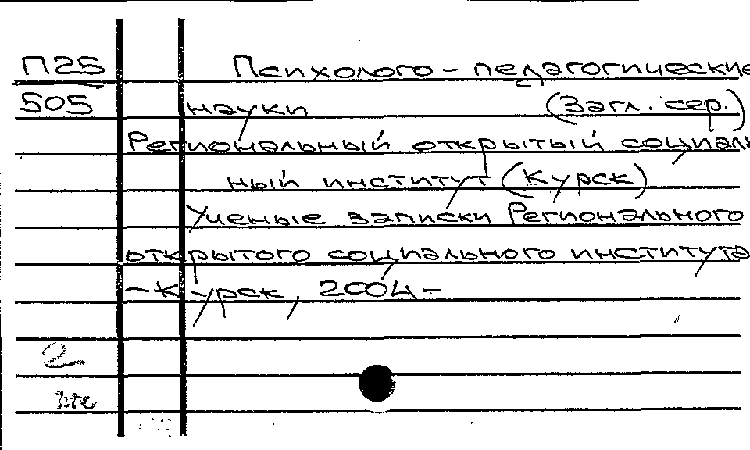 П25 Психолого-педагогические
505 науки (Загл. сер.)
Региональный открытый социаль
ный институт (Курск)
Ученые записки Регионального
открытого социального института
- Курск, 2004 -
2